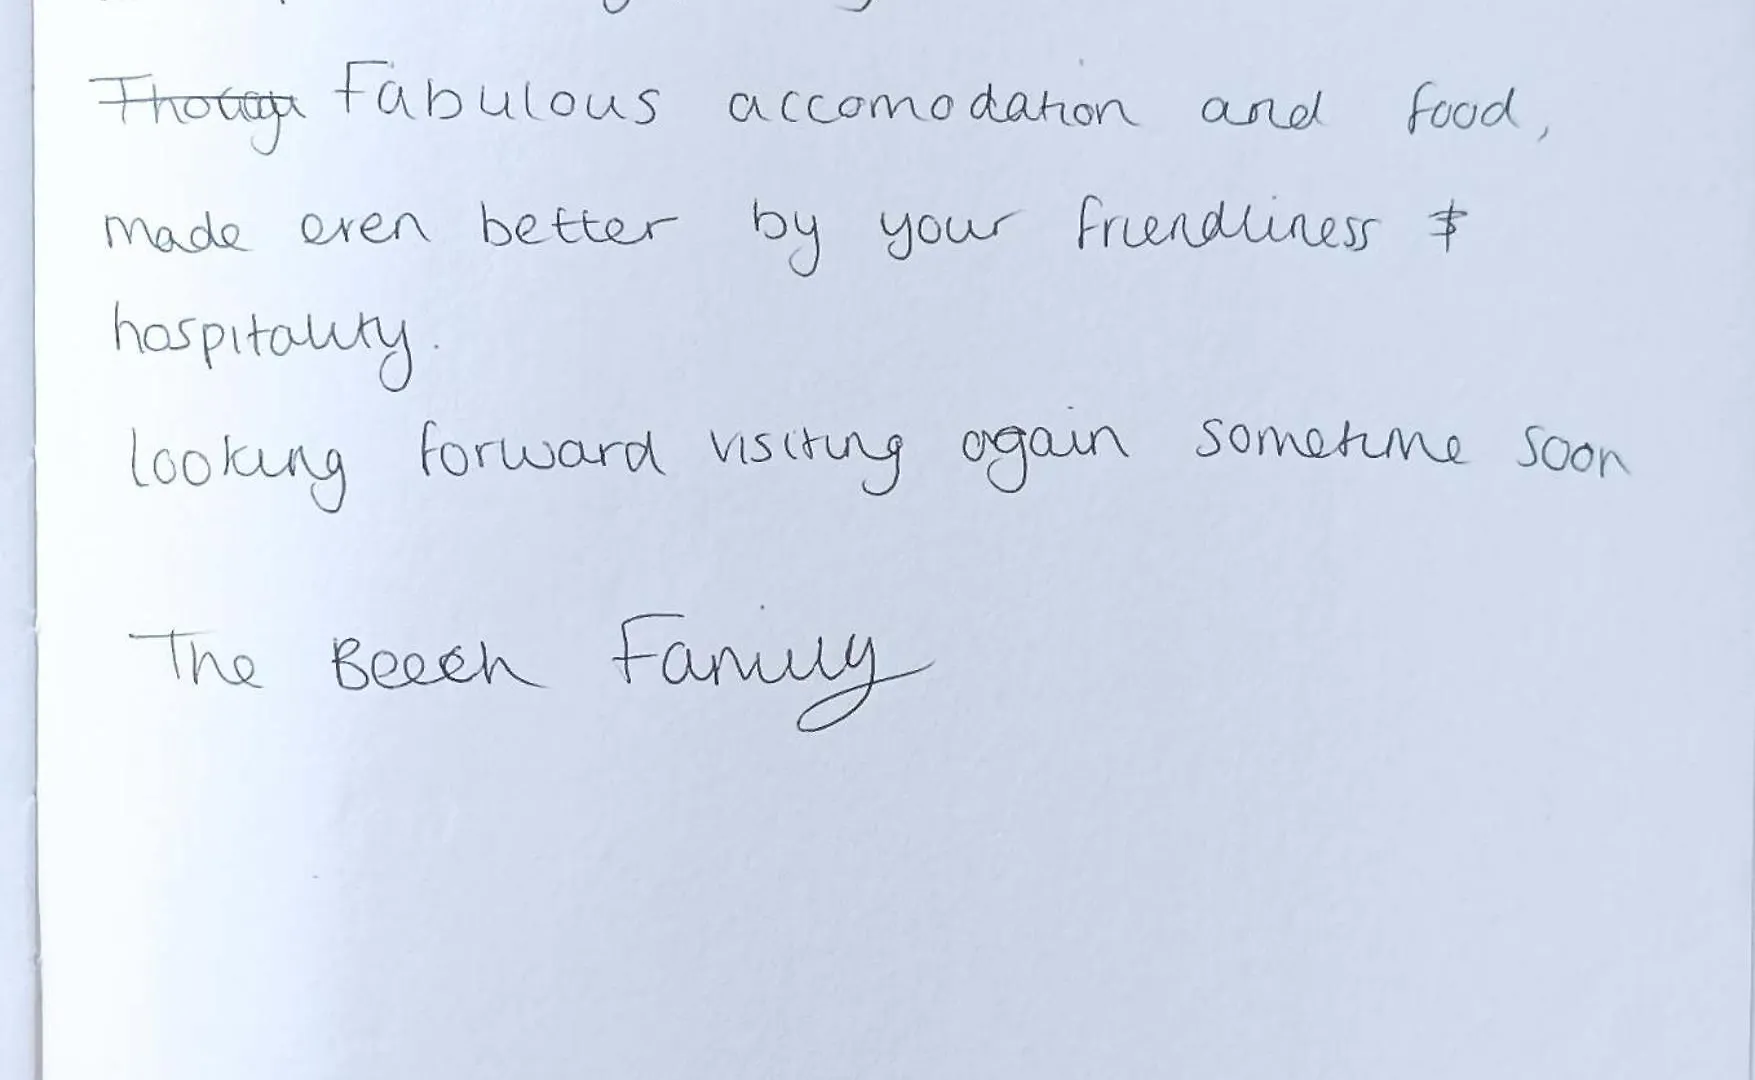 Fabulous accomodation and food,
made even better by your friendliness &
hospitality.
looking forward visiting again sometime soon
The Beech Family